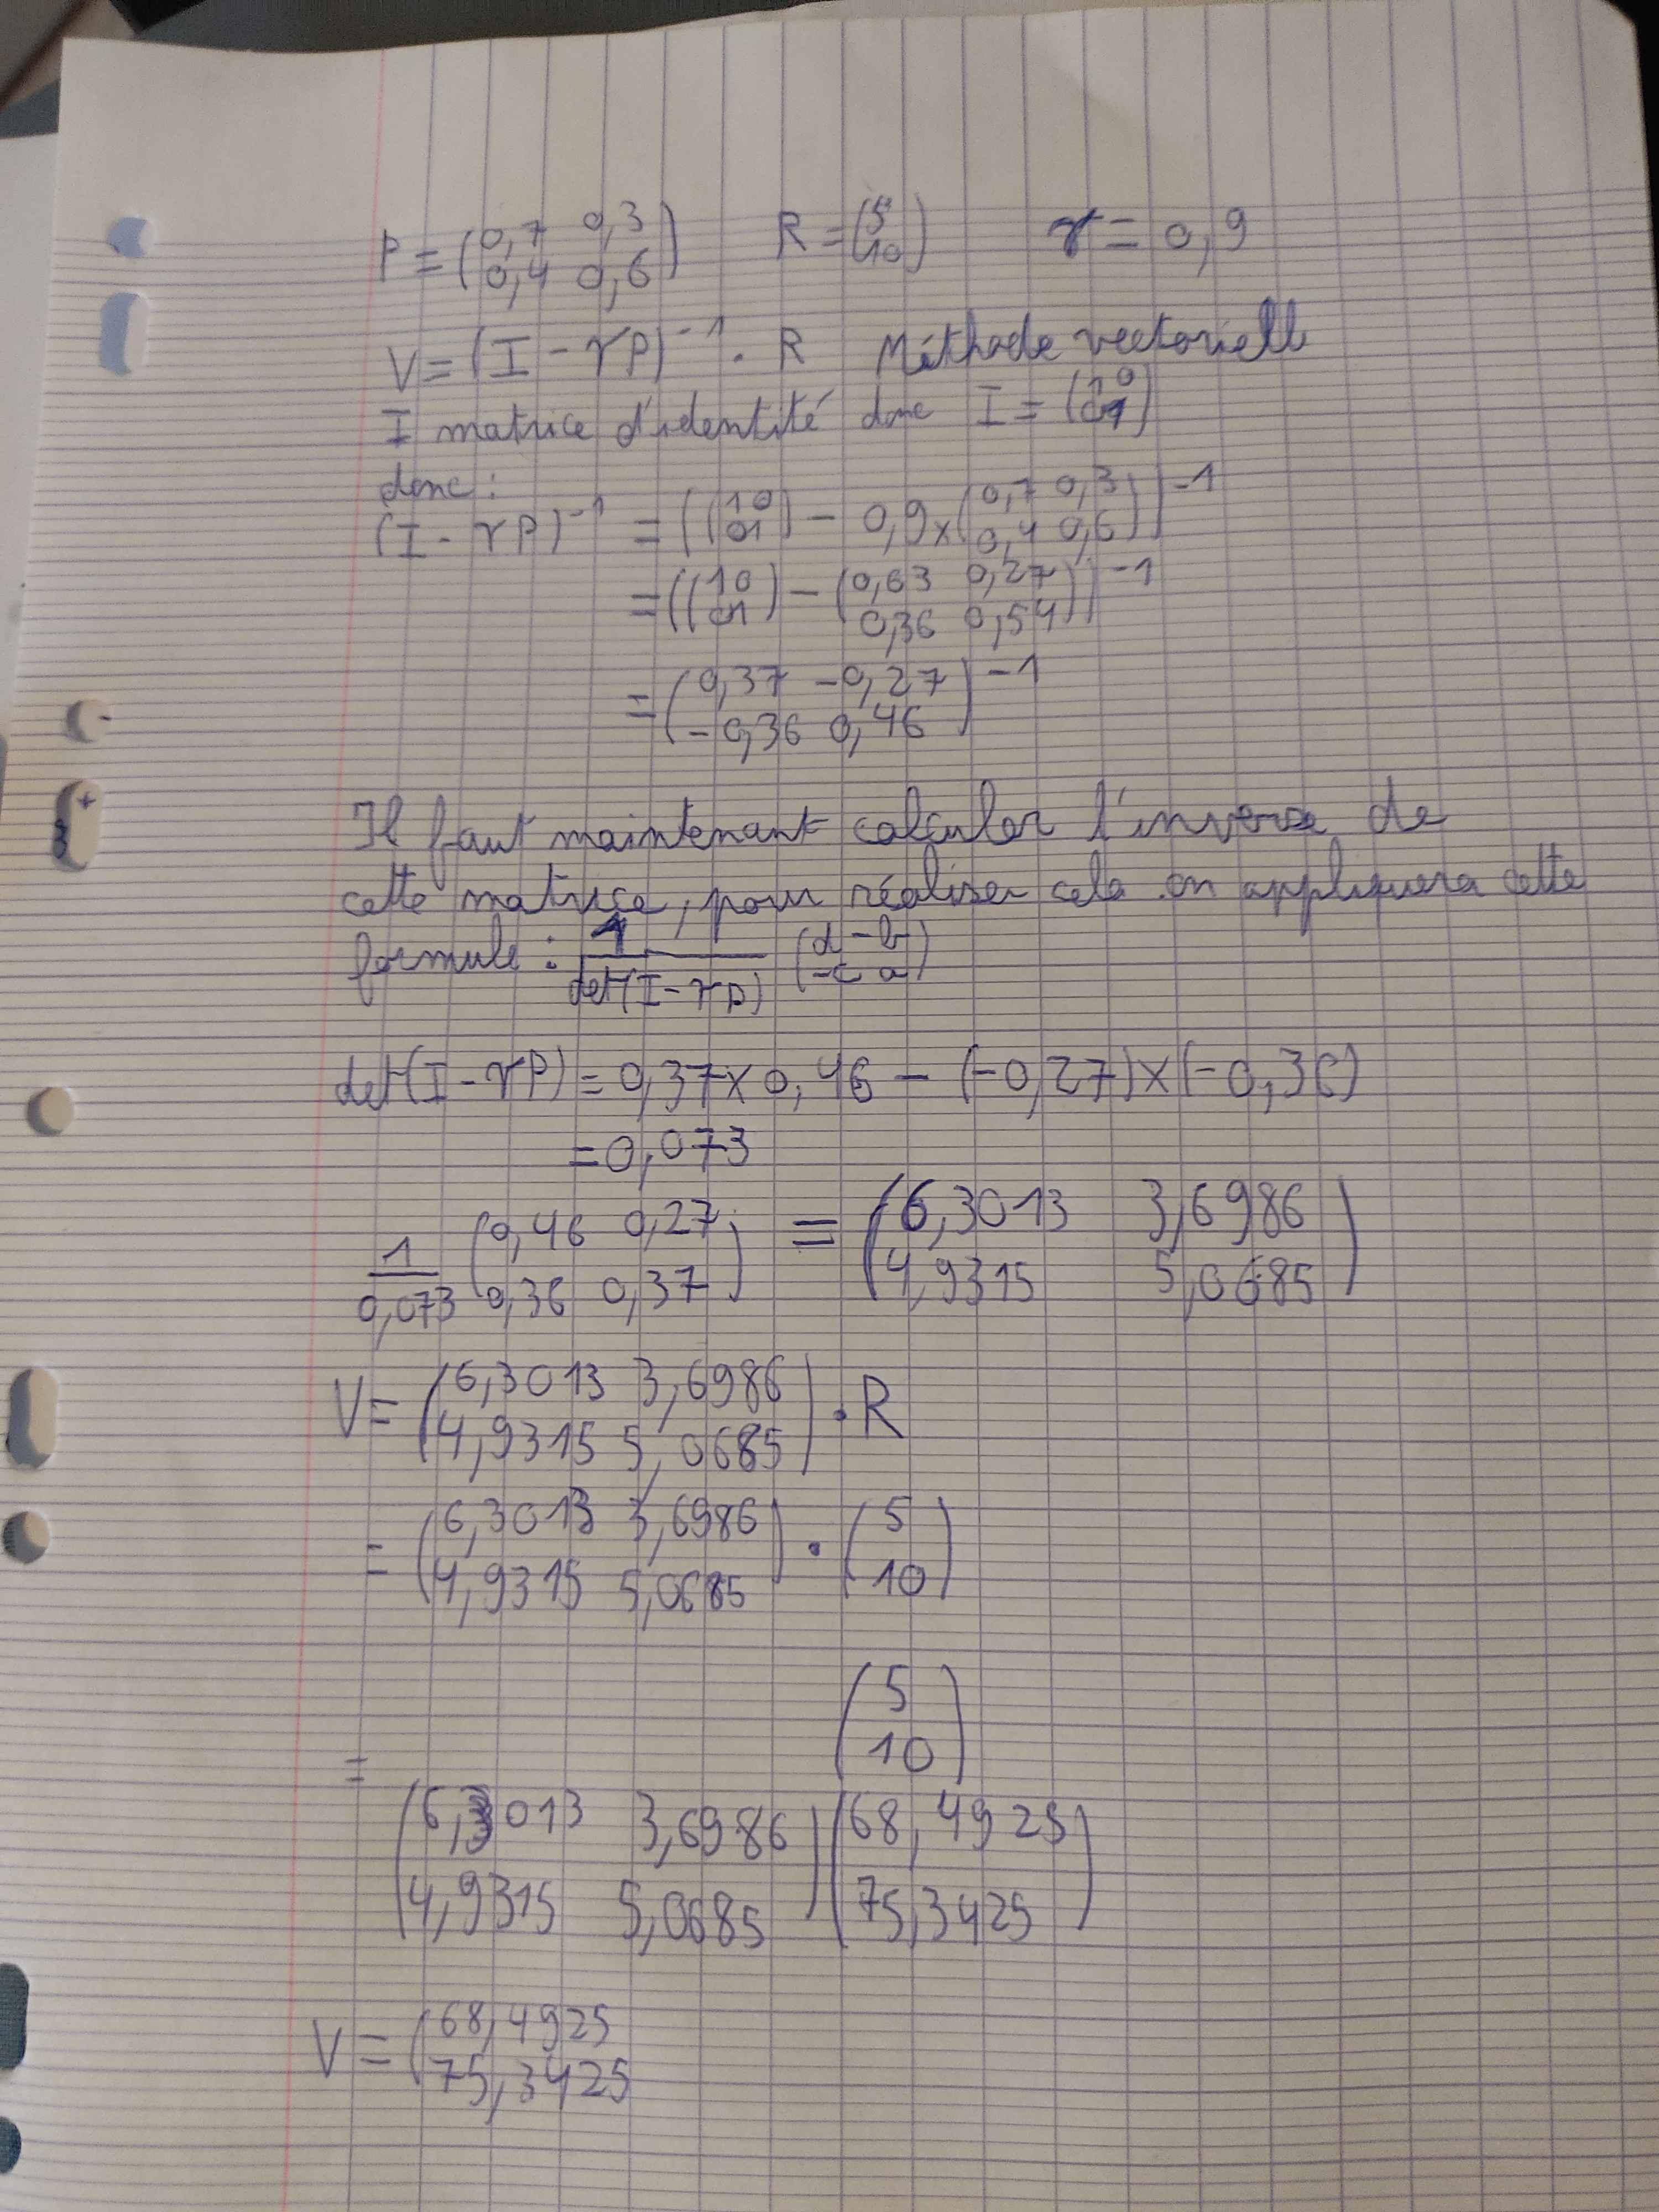 P = (0,7 0,3 / 0,4 0,6) R = (5 / 10) γ = 0,9
V = (I - γP)^-1 . R Méthode vectoriell
I matrice d'identité donc I = (1 0 / 0 1)
donc :
(I - γP)^-1 = ((1 0 / 0 1) - 0,9 x (0,7 0,3 / 0,4 0,6))^-1
= ((1 0 / 0 1) - (0,63 0,27 / 0,36 0,54))^-1
= (0,37 -0,27 / -0,36 0,46)^-1
Il faut maintenant calculer l'inverse de
cette matrice, pour réaliser cela on appliquera cette
formule : 1 / det(I - γP) (d -b / -c a)
det(I - γP) = 0,37 x 0,46 - (-0,27) x (-0,36)
= 0,073
1 / 0,073 (0,46 0,27 / 0,36 0,37) = (6,3013 3,6986 / 4,9315 5,0685)
V = (6,3013 3,6986 / 4,9315 5,0685) . R
= (6,3013 3,6986 / 4,9315 5,0685) . (5 / 10)
(5 / 10)
= (6,3013 3,6986 / 4,9315 5,0685) (68,4925 / 75,3425)
V = (68,4925 / 75,3425